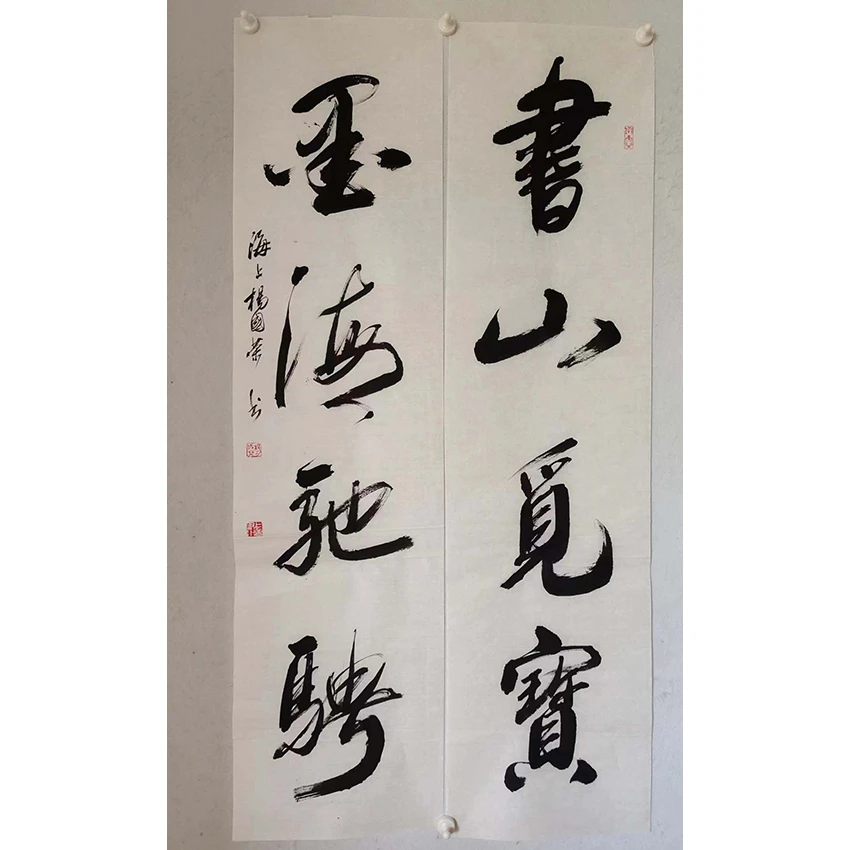 書山覓寶
墨海馳騁
海上楊國榮書